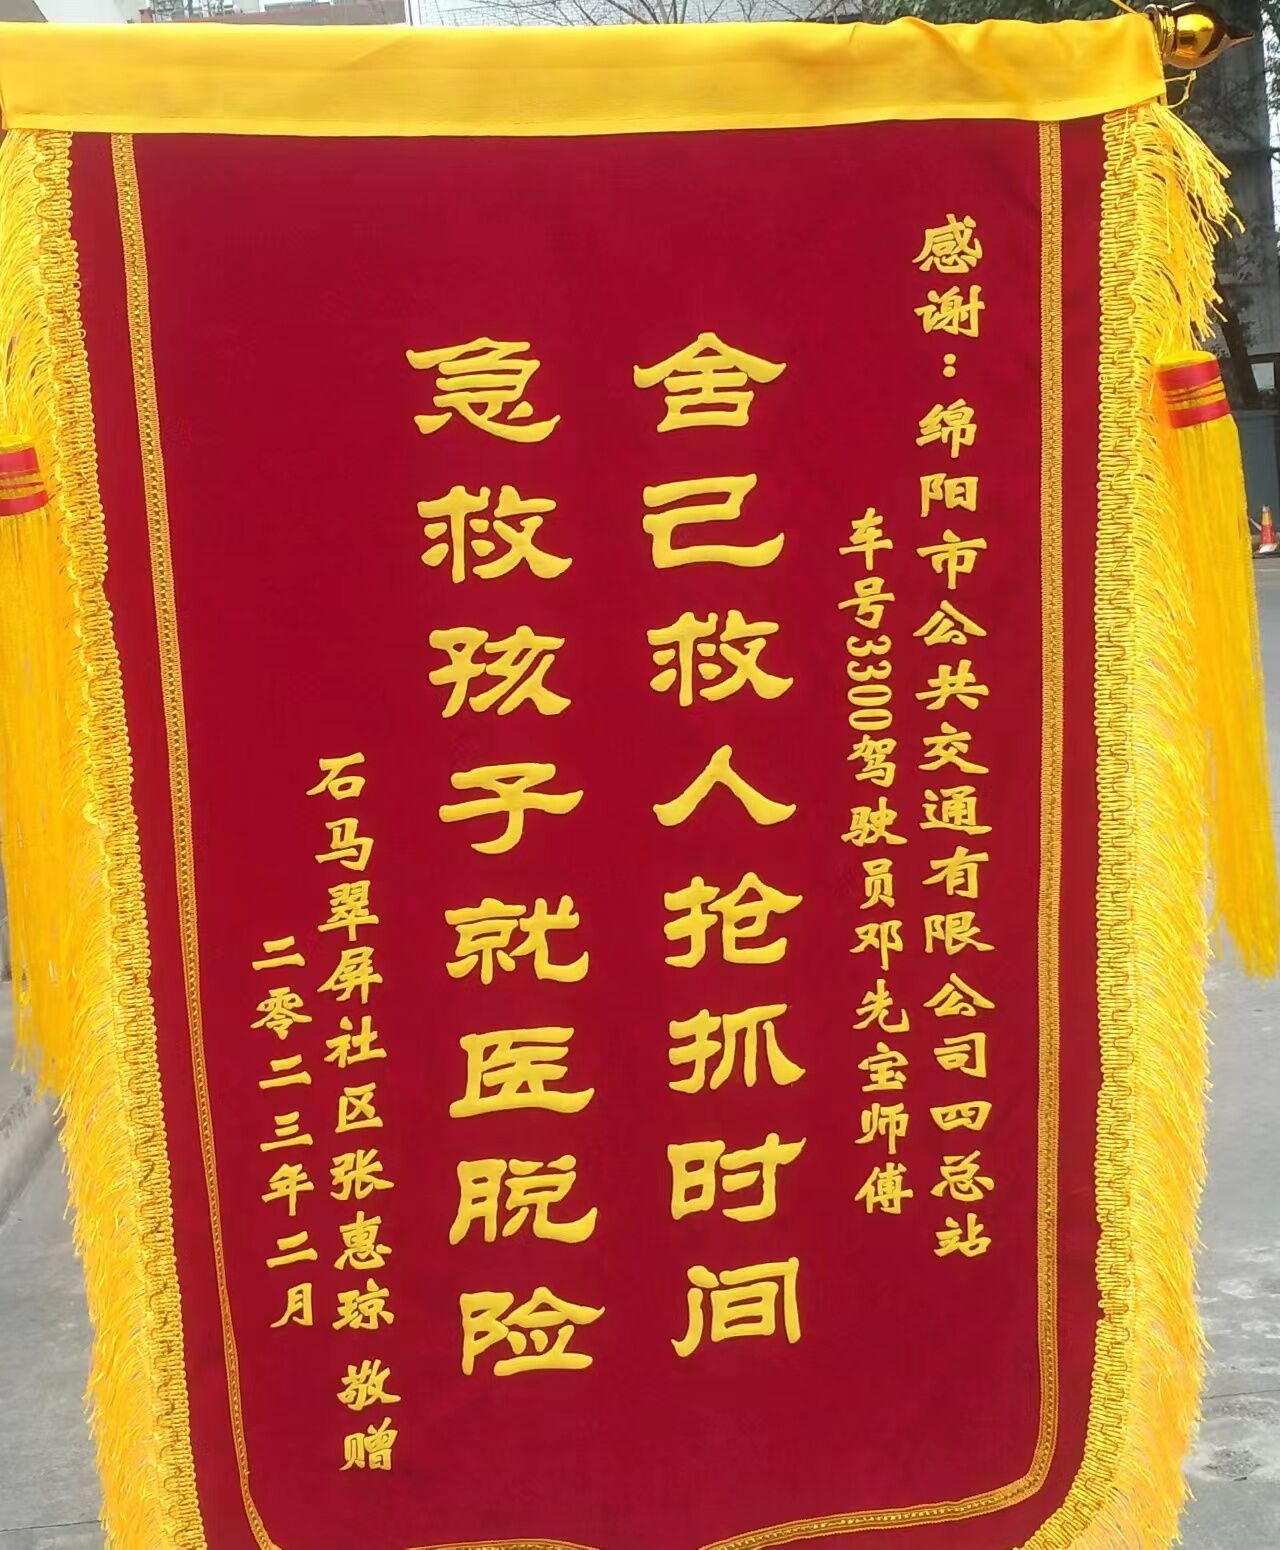 感谢：绵阳市公共交通有限公司四总站
车号3300驾驶员邓先宝师傅
舍己救人抢抓时间
急救孩子就医脱险
石马翠屏社区张惠琼 敬赠
二零二三年二月